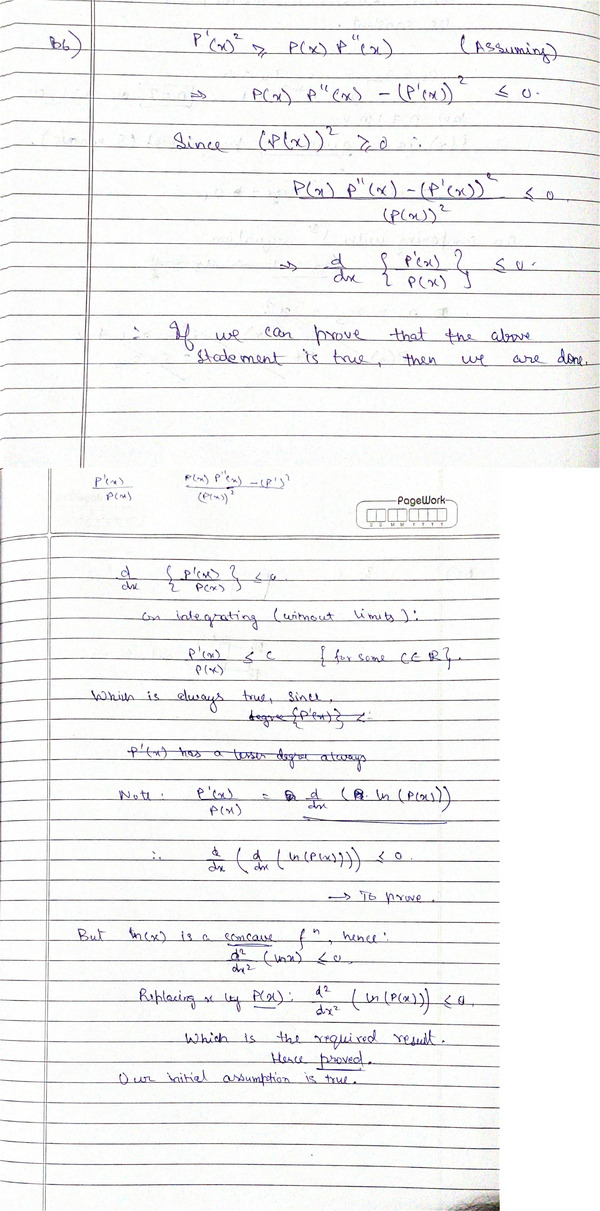 B6) P'(x)² ≥ P(x) P''(x) (Assuming)
⇒ P(x) P''(x) - (P'(x))² ≤ 0.
Since (P(x))² ≥ 0 ∴
P(x) P''(x) - (P'(x))² / (P(x))² ≤ 0
⇒ d/dx { P'(x) / P(x) } ≤ 0.
∴ If we can prove that the above
statement is true, then we are done.
P'(x) / P(x) P(x) P''(x) - (P')² / (P(x))²
PageWork
D D M M Y Y Y Y
d/dx { P'(x) / P(x) } ≤ 0.
On integrating (without limits):
P'(x) / P(x) ≤ C {for some C ∈ ℝ}.
Which is always true, since,
degree {P'(x)} <
P'(x) has a lesser degree always
Note: P'(x) / P(x) = d/dx (ln(P(x)))
∴ d/dx ( d/dx (ln(P(x))) ) ≤ 0.
→ To prove.
But ln(x) is a concave fⁿ, hence:
d²/dx² (ln x) ≤ 0.
Replacing x by P(x): d²/dx² (ln(P(x))) ≤ 0.
Which is the required result.
Hence proved.
Our initial assumption is true.